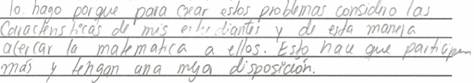 lo hago porque para crear estos problemas considero las
características de mis estudiantes y de esta manera
acercar la matematica a ellos. Esto hace que participen
más y tengan una mejor disposición.